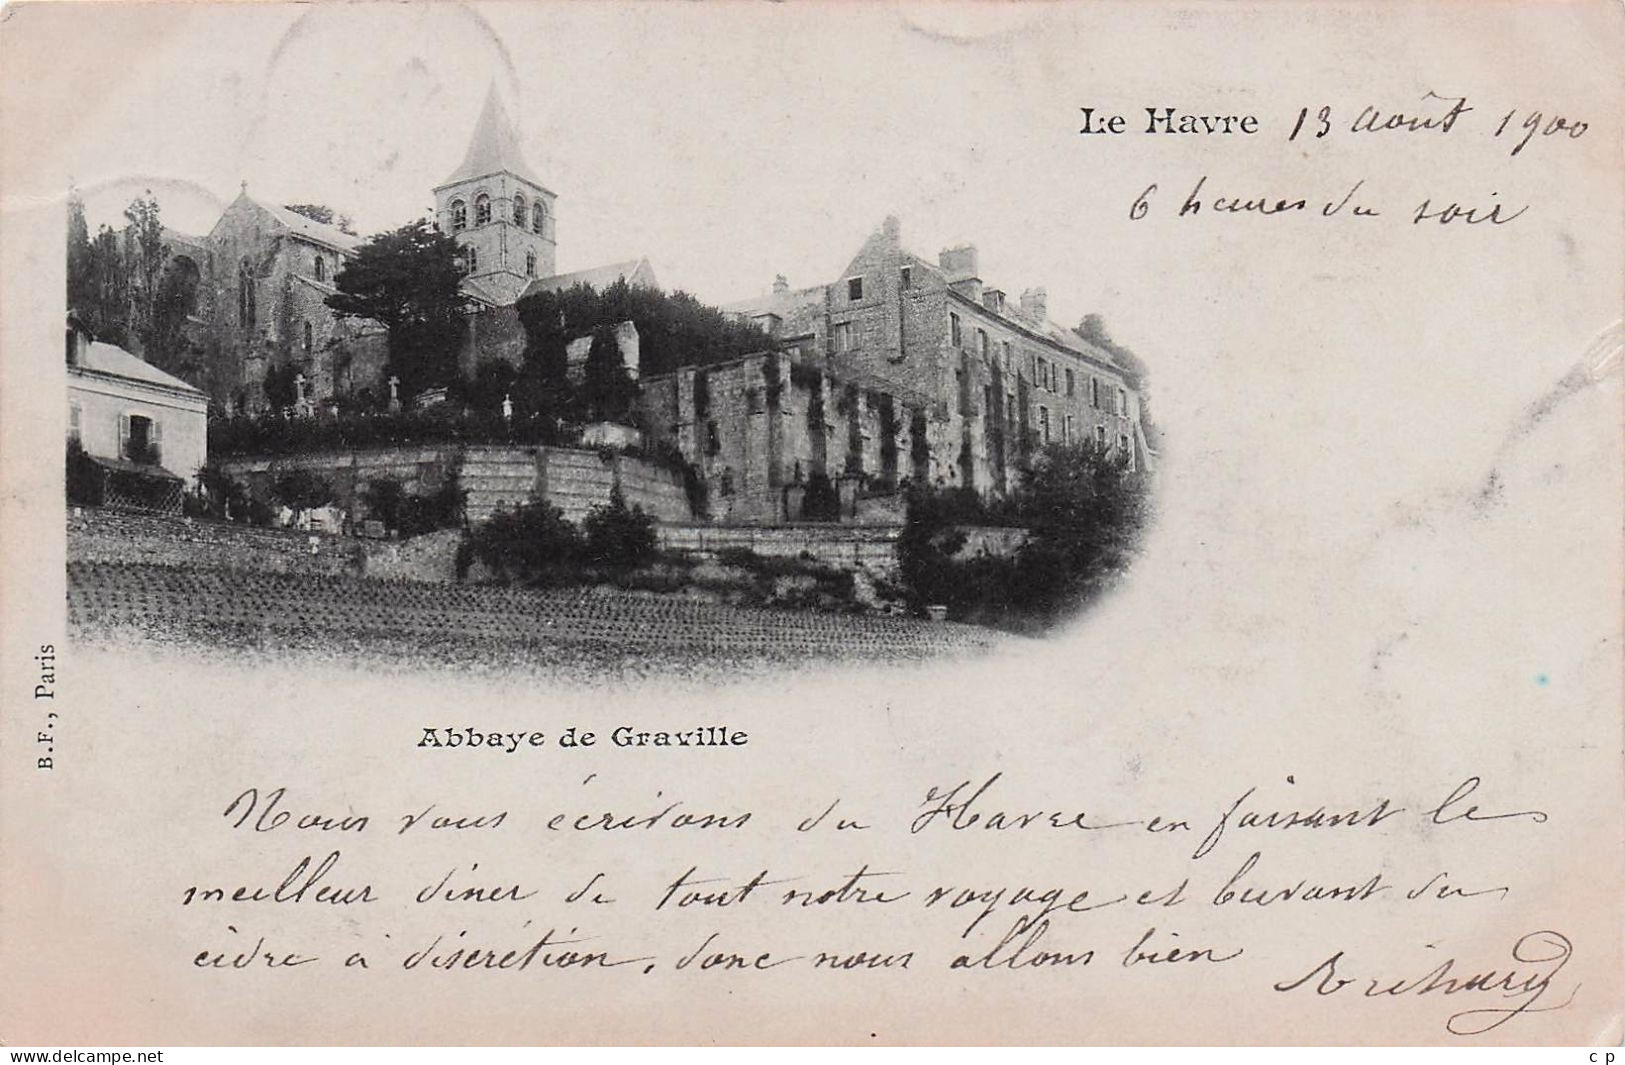 Le Havre 13 Août 1900
6 heures du soir
B.F., Paris
Abbaye de Graville
Nous vous écrivons du Havre en faisant le
meilleur diner de tout notre voyage et buvant du
cidre à discrétion, donc nous allons bien
www.delcampe.net
c p